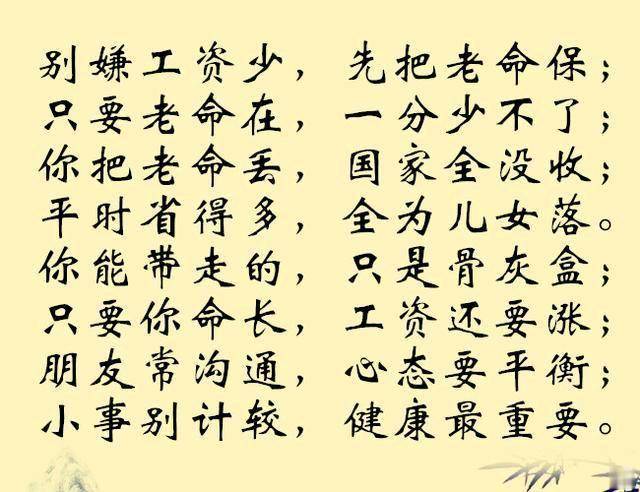 别嫌工资少，先把老命保；
只要老命在，一分少不了；
你把老命丢，国家全没收；
平时省得多，全为儿女落。
你能带走的，只是骨灰盒；
只要你命长，工资还要涨；
朋友常沟通，心态要平衡；
小事别计较，健康最重要。